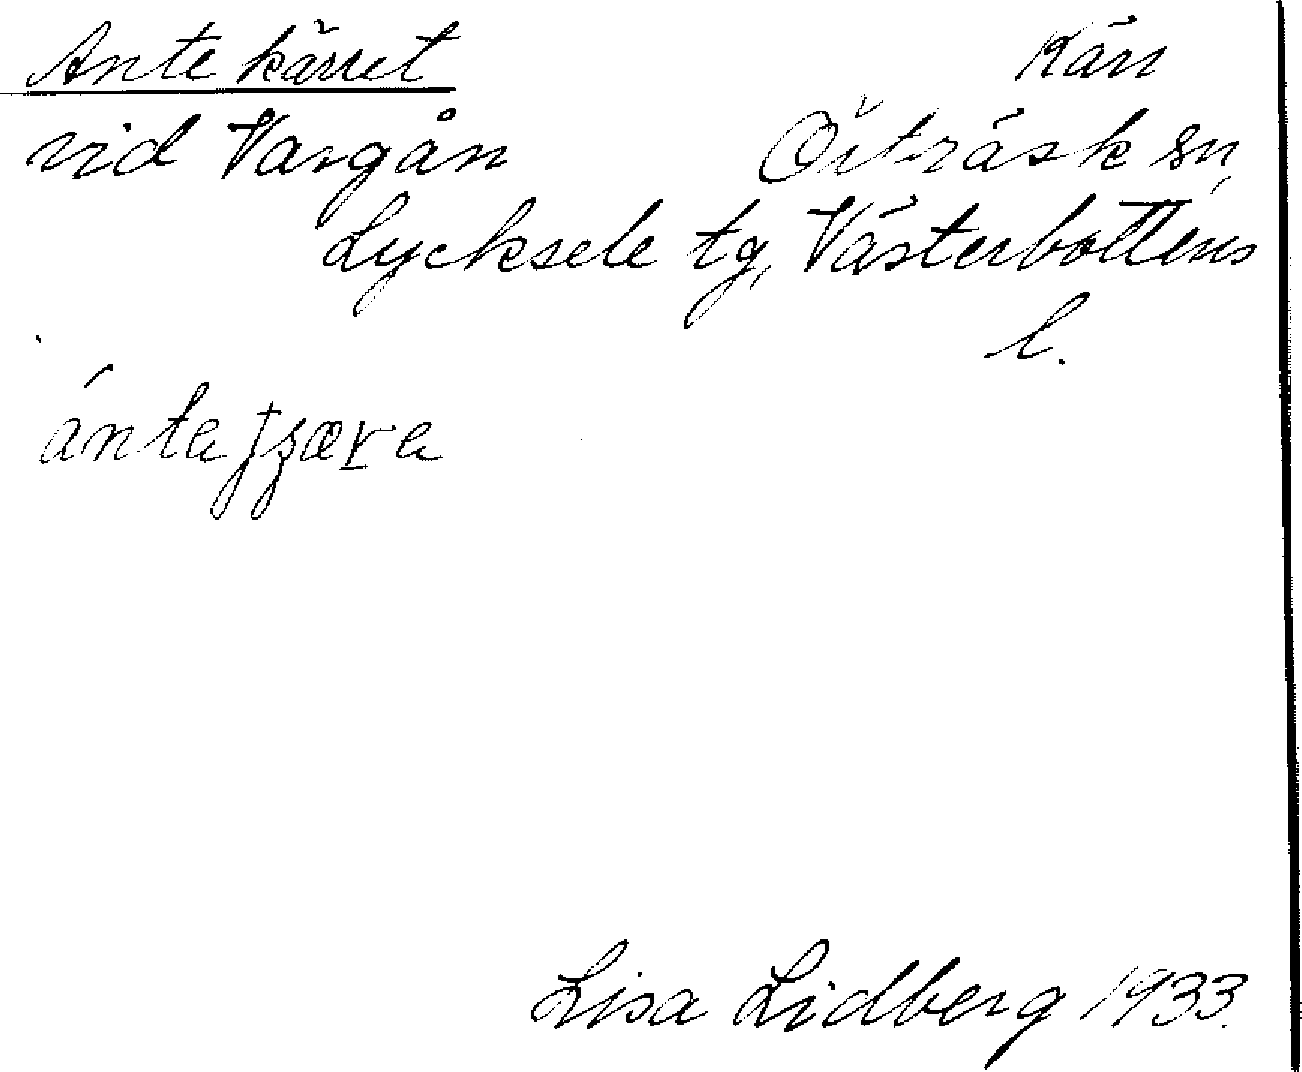 Antekärret Kärr
vid Vargån Örträsk sn,
Lycksele tg, Västerbottens
l.
Lisa Lidberg 1933.